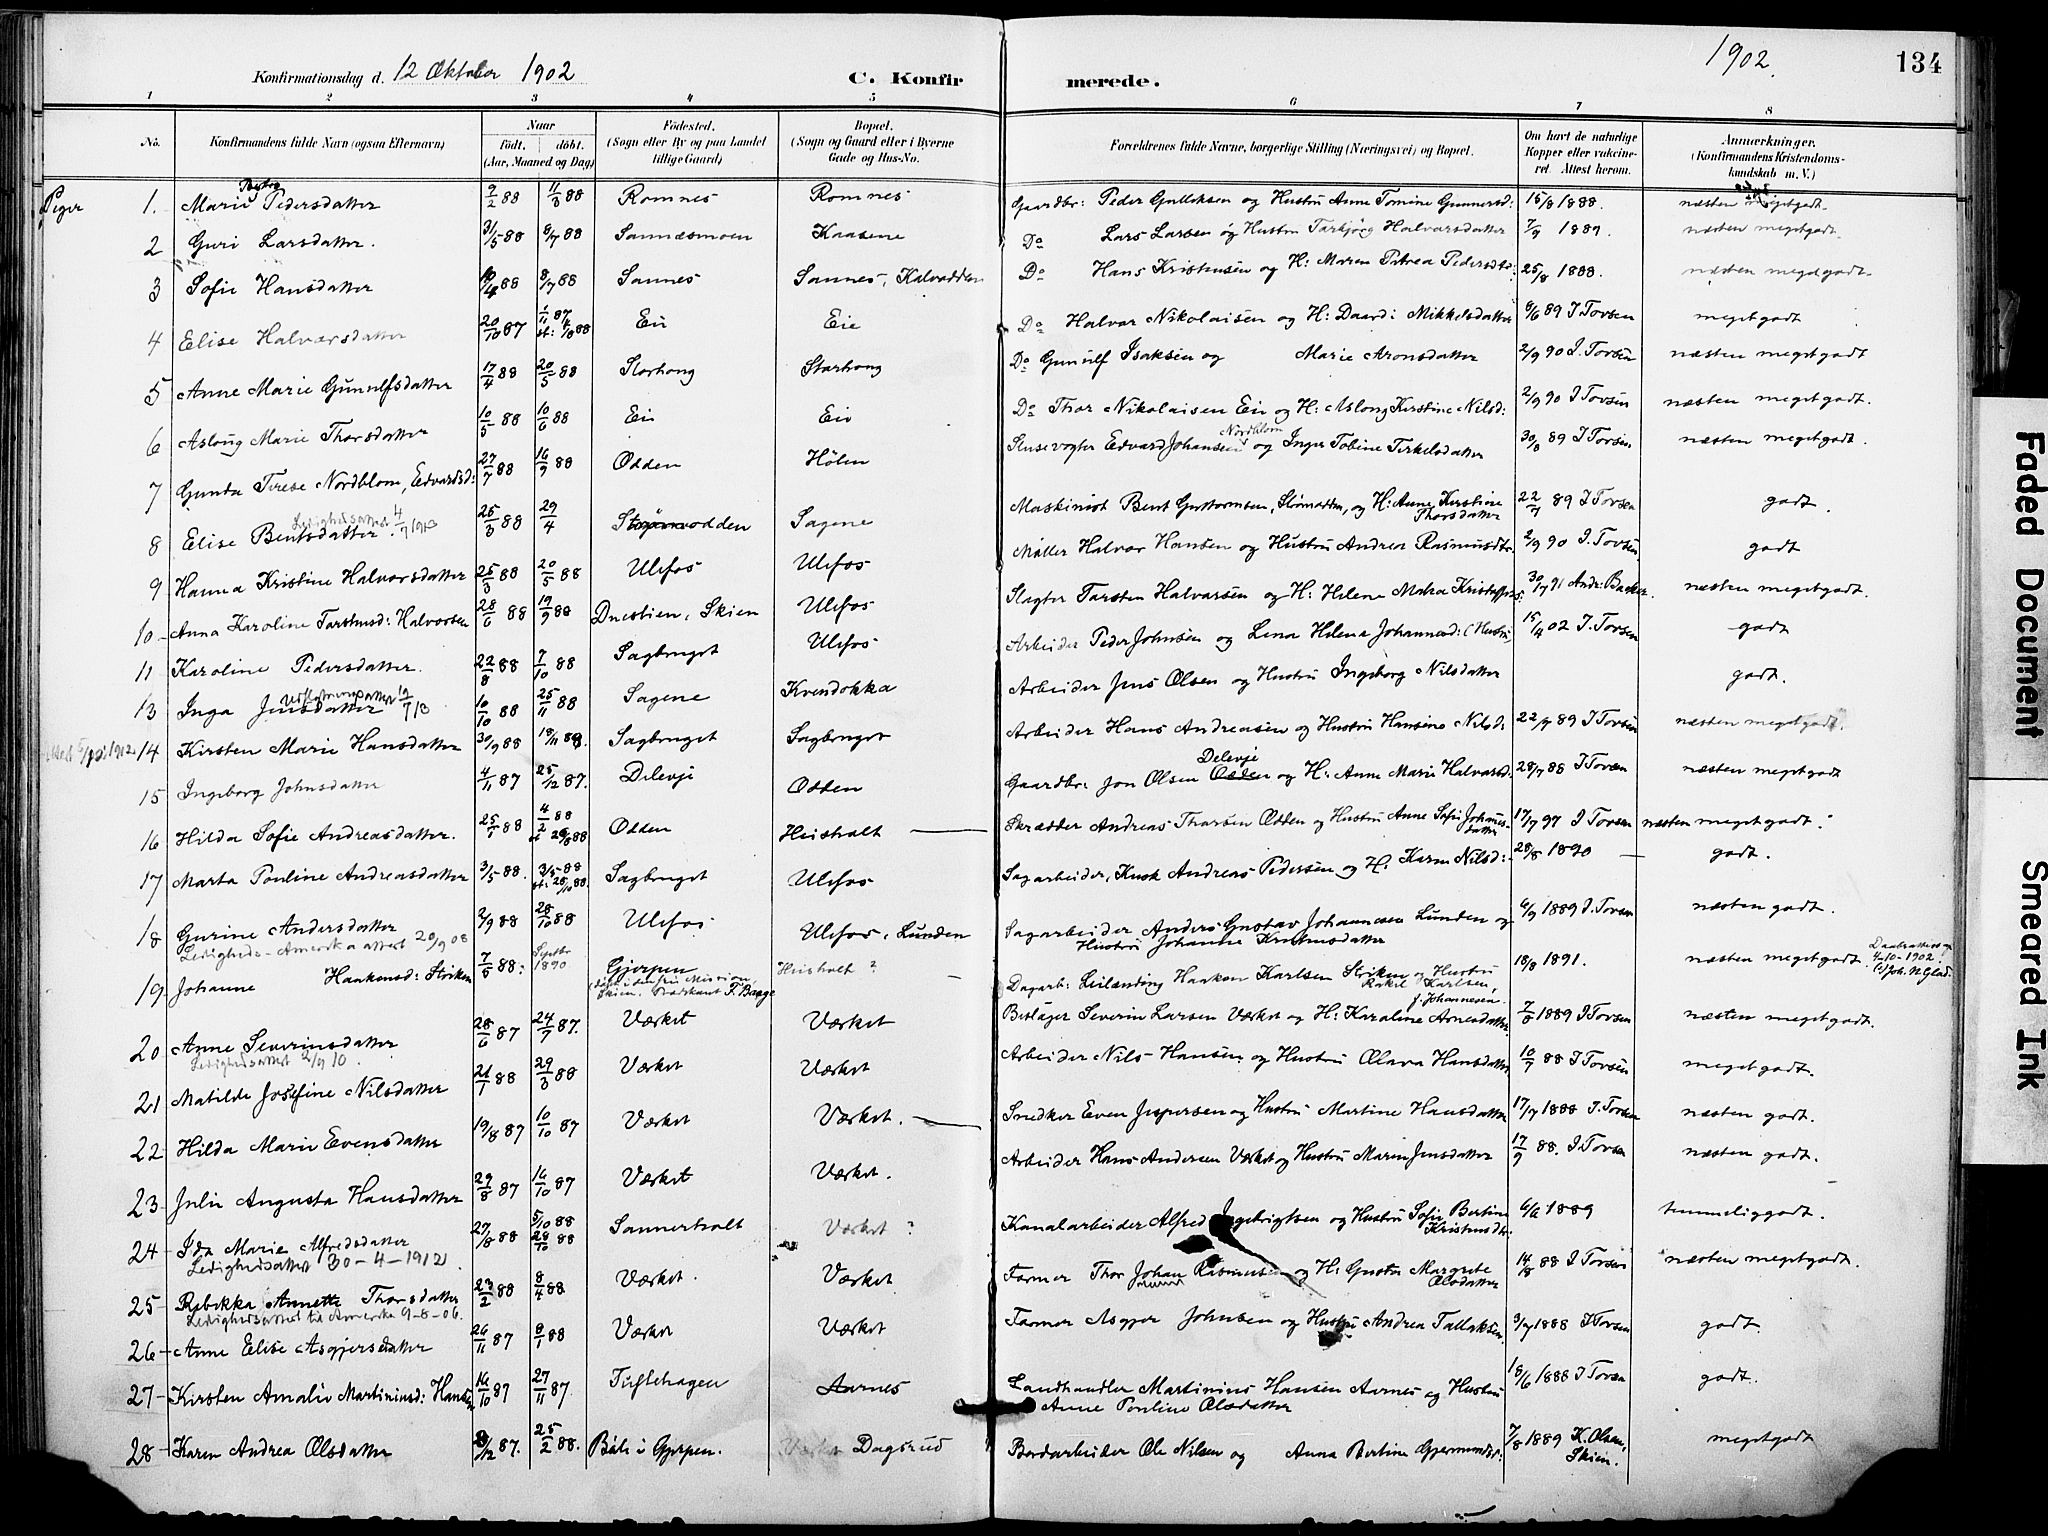 Konfirmationsdag d. 12 Oktober 1902
C. Konfirmerede.
1902.
134
1 2 3 4 5 6 7 8
No.
Konfirmandens fulde Navn (ogsaa Efternavn)
Naar
født. døbt.
(Aar, Maaned og Dag)
Fødested.
(Sogn eller By og paa Landet tillige Gaard)
Bopæl.
(Sogn og Gaard eller i Byerne Gade og Hus-No.
Forældrenes fulde Navne, borgerlige Stilling (Næringsvei) og Bopæl.
Om havt de naturlige Kopper eller vakcineret. Attest herom.
Anmerkninger.
(Konfirmandens Kristendomskundskab m. V.)
Piger
1. Marie Pedersdatter 9/2 88 11/3 88 Romnes Romnes Gaardbr: Peder Gulleksen og Hustru Anne Tomine Gunnersd: 15/8 1888. næsten megetgodt.
2 Guri Larsdatter. 31/5 88 8/7 88 Sannesmoen Kaasene Do Lars Larsen og Hustru Tarbjørg Halvorsdatter 7/9 1889. næsten megetgodt.
3 Sofie Hansdatter 10/4 88 8/7 88 Sannes Sannes, Kalvodden Do Hans Kristensen og H: Maren Petrea Pedersdtr: 25/8 1888. næsten megetgodt.
4 Elise Halvorsdatter 20/10 87 1/11 87 Eie Eie Do Halvor Nikolaisen og H: Daardi Mikkelsdatter 8/6 89 I Torsen megetgodt
5 Anne Marie Gunulfsdatter 17/4 88 20/5 88 Storhong Storhong Do Gunulf Isaksen og Marie Aronsdatter 2/9 90 I. Torsen næsten megetgodt
6 Asloug Marie Thorsdatter 10/5 88 10/6 88 Eie Eie Do Thor Nikolaisen Eie og H: Aslong Kirstine Nilsd: 2/9 90 I Torsen næsten megetgodt.
7 Gunda Terese Nordblom, Edvardsd: 27/7 88 16/9 88 Odden Hølen Slusevogter Edvard Johansen Nordblom og Inger Tobine Terkelsdatter 30/8 89 I Torsen næsten megetgodt.
8 Elise Bentsdatter. Ledighedsattest 4/7 1913 25/3 88 29/4 Sagene Maskinist Bent Guttormsen, Strømodden, og H: Anne Kirstine Thorsdatter 22/7 89 I Torsen godt.
9 Hanna Kristine Halvorsdatter 25/3 88 20/5 88 Ulefos Ulefos Møller Halvor Hansen og Hustru Andrea Rasmusdtr. 2/9 90 I. Torsen godt
10 Anna Karoline Torstensd: Halvorsen 28/6 88 19/9 88 Duestien, Skien Ulefos Slagter Torsten Halvorsen og H: Helene Maria Kristoffers. 30/7 91 Andr: Backer. næsten megetgodt.
11 Karoline Pedersdatter. 22/8 88 7/10 88 Sagbruget Ulefos Arbeider Peder Johnsen og Lina Helena Johannesd: (Hustru) 15/4 02 I. Torsen godt
13 Inga Jensdatter 10/10 88 25/11 88 Sagene Kvendokka Arbeider Jens Olsen og Hustru Ingeborg Nilsdatter godt.
14 Kirsten Marie Hansdatter 30/9 88 18/11 88. Sagbruget Sagbruget Arbeider Hans Andreasen og Hustru Hansine Nilsd: 22/7 89 I Torsen næsten megetgodt.
15 Ingeborg Johnsdatter 4/11 87 25/12 87. Dilevje Odden Gaardbr: Jon Olsen Delevje og H: Anne Marie Halvorsd. 28/7 88 I Torsen næsten megetgodt
16 Hilda Sofie Andreasdatter. 25/1 88 4/2 88 Odden Heisholt Skrædder Andreas Thorsen Odden og Hustru Anne Sofie Johannesdatter 17/9 97 I Torsen næsten megetgodt.
17 Marta Pouline Andreasdatter 3/5 88. 3/5 88 Sagbruget Ulefos Sagarbeider, Kusk Andreas Pedersen og H: Karen Nilsd: 28/8 1890 godt.
18 Gurine Andersdatter 2/9 88 28/10 88 Ulefos Ulefos, Lunden Sagarbeider Anders Gustav Johannesen Lunden og Hustru Johanne Kristensdatter 6/9 1889 I. Torsen næsten godt.
Ledigheds-Amerika attest 20/9 08
19 Johanne Haakonsd: Striken 7/6 88: Septbr 1890 Gjerpen (døbt i den fri Mission Skien. Prædikant F. Bauge Heisholt? Dagarb: Leilænding Haakon Karlsen Striken og Hustru Rakel Karlsen, f. Johannesen. 18/8 1891. næsten megetgodt. Daabsattest 4-10-1902. (s) Joh. N. Glad.
20 Anne Severinsdatter 28/6 87 24/7 87. Værket Værket Beslager Severin Larsen Værket og H: Karoline Arnesdatter 7/8 1889 I Torsen næsten megetgodt.
Ledighedsattest 2/9 10.
21 Matilde Josefine Nilsdatter 21/1 88 29/3 88 Værket Værket Arbeider Nils Hansen og Hustru Olava Hansdatter 10/7 88 I Torsen megetgodt.
22 Hilda Marie Evensdatter 19/8 87 10/10 87 Værket Værket. Snedker Even Jespersen og Hustru Martine Hansdatter 17/7 1888 I. Torsen næsten godt.
23 Julie Augusta Hansdatter 29/8 87 16/10 87 Værket Værket. Arbeider Hans Andersen Værket og Hustru Maren Jensdatter 17/9 88. I Torsen næsten godt.
24 Ida Marie Alfredsdatter 27/8 88 5/10 88 28/10 88 Sannerholt Værket? Kanalarbeider Alfred Ingebrigtsen og Hustru Sofie Bertine Kristensdtr. 6/6 1889 temmeliggodt.
Ledighedsattest 30-4-1912
25 Rebekka Annette Thorsdatter 23/2 88 8/4 88 Værket. Værket Farmer Thor Johan Rasmussen og H: Gusta Margrete Olsdatter 14/8 88 I Torsen næsten megetgodt.
Ledighedsattest til Amerika 9-8-06.
26 Anne Elise Asgjersdatter 26/11 87 8/1 88 Værket Værket Farmer Asgjer Johnsen og Hustru Andrea Tallaksen. 3/7 1888 I Torsen godt.
27 Kirsten Amalie Martiniusd: Hansen 16/10 87 27/11 87. Tuftehagen Aarnes Landhandler Martinius Hansen Aarnes og Hustru Anne Pouline Olsdatter 18/6 1888 I Torsen godt.
28 Karen Andrea Olsdatter 8/12 87. 25/2 88. Bøle i Gjerpen. Dagsrud Bordarbeider Ole Nilsen og Anna Bertine Gjermundsd: 7/8 1889 K. Olsen, Skien. megetgodt
Faded Document
Smeared Ink